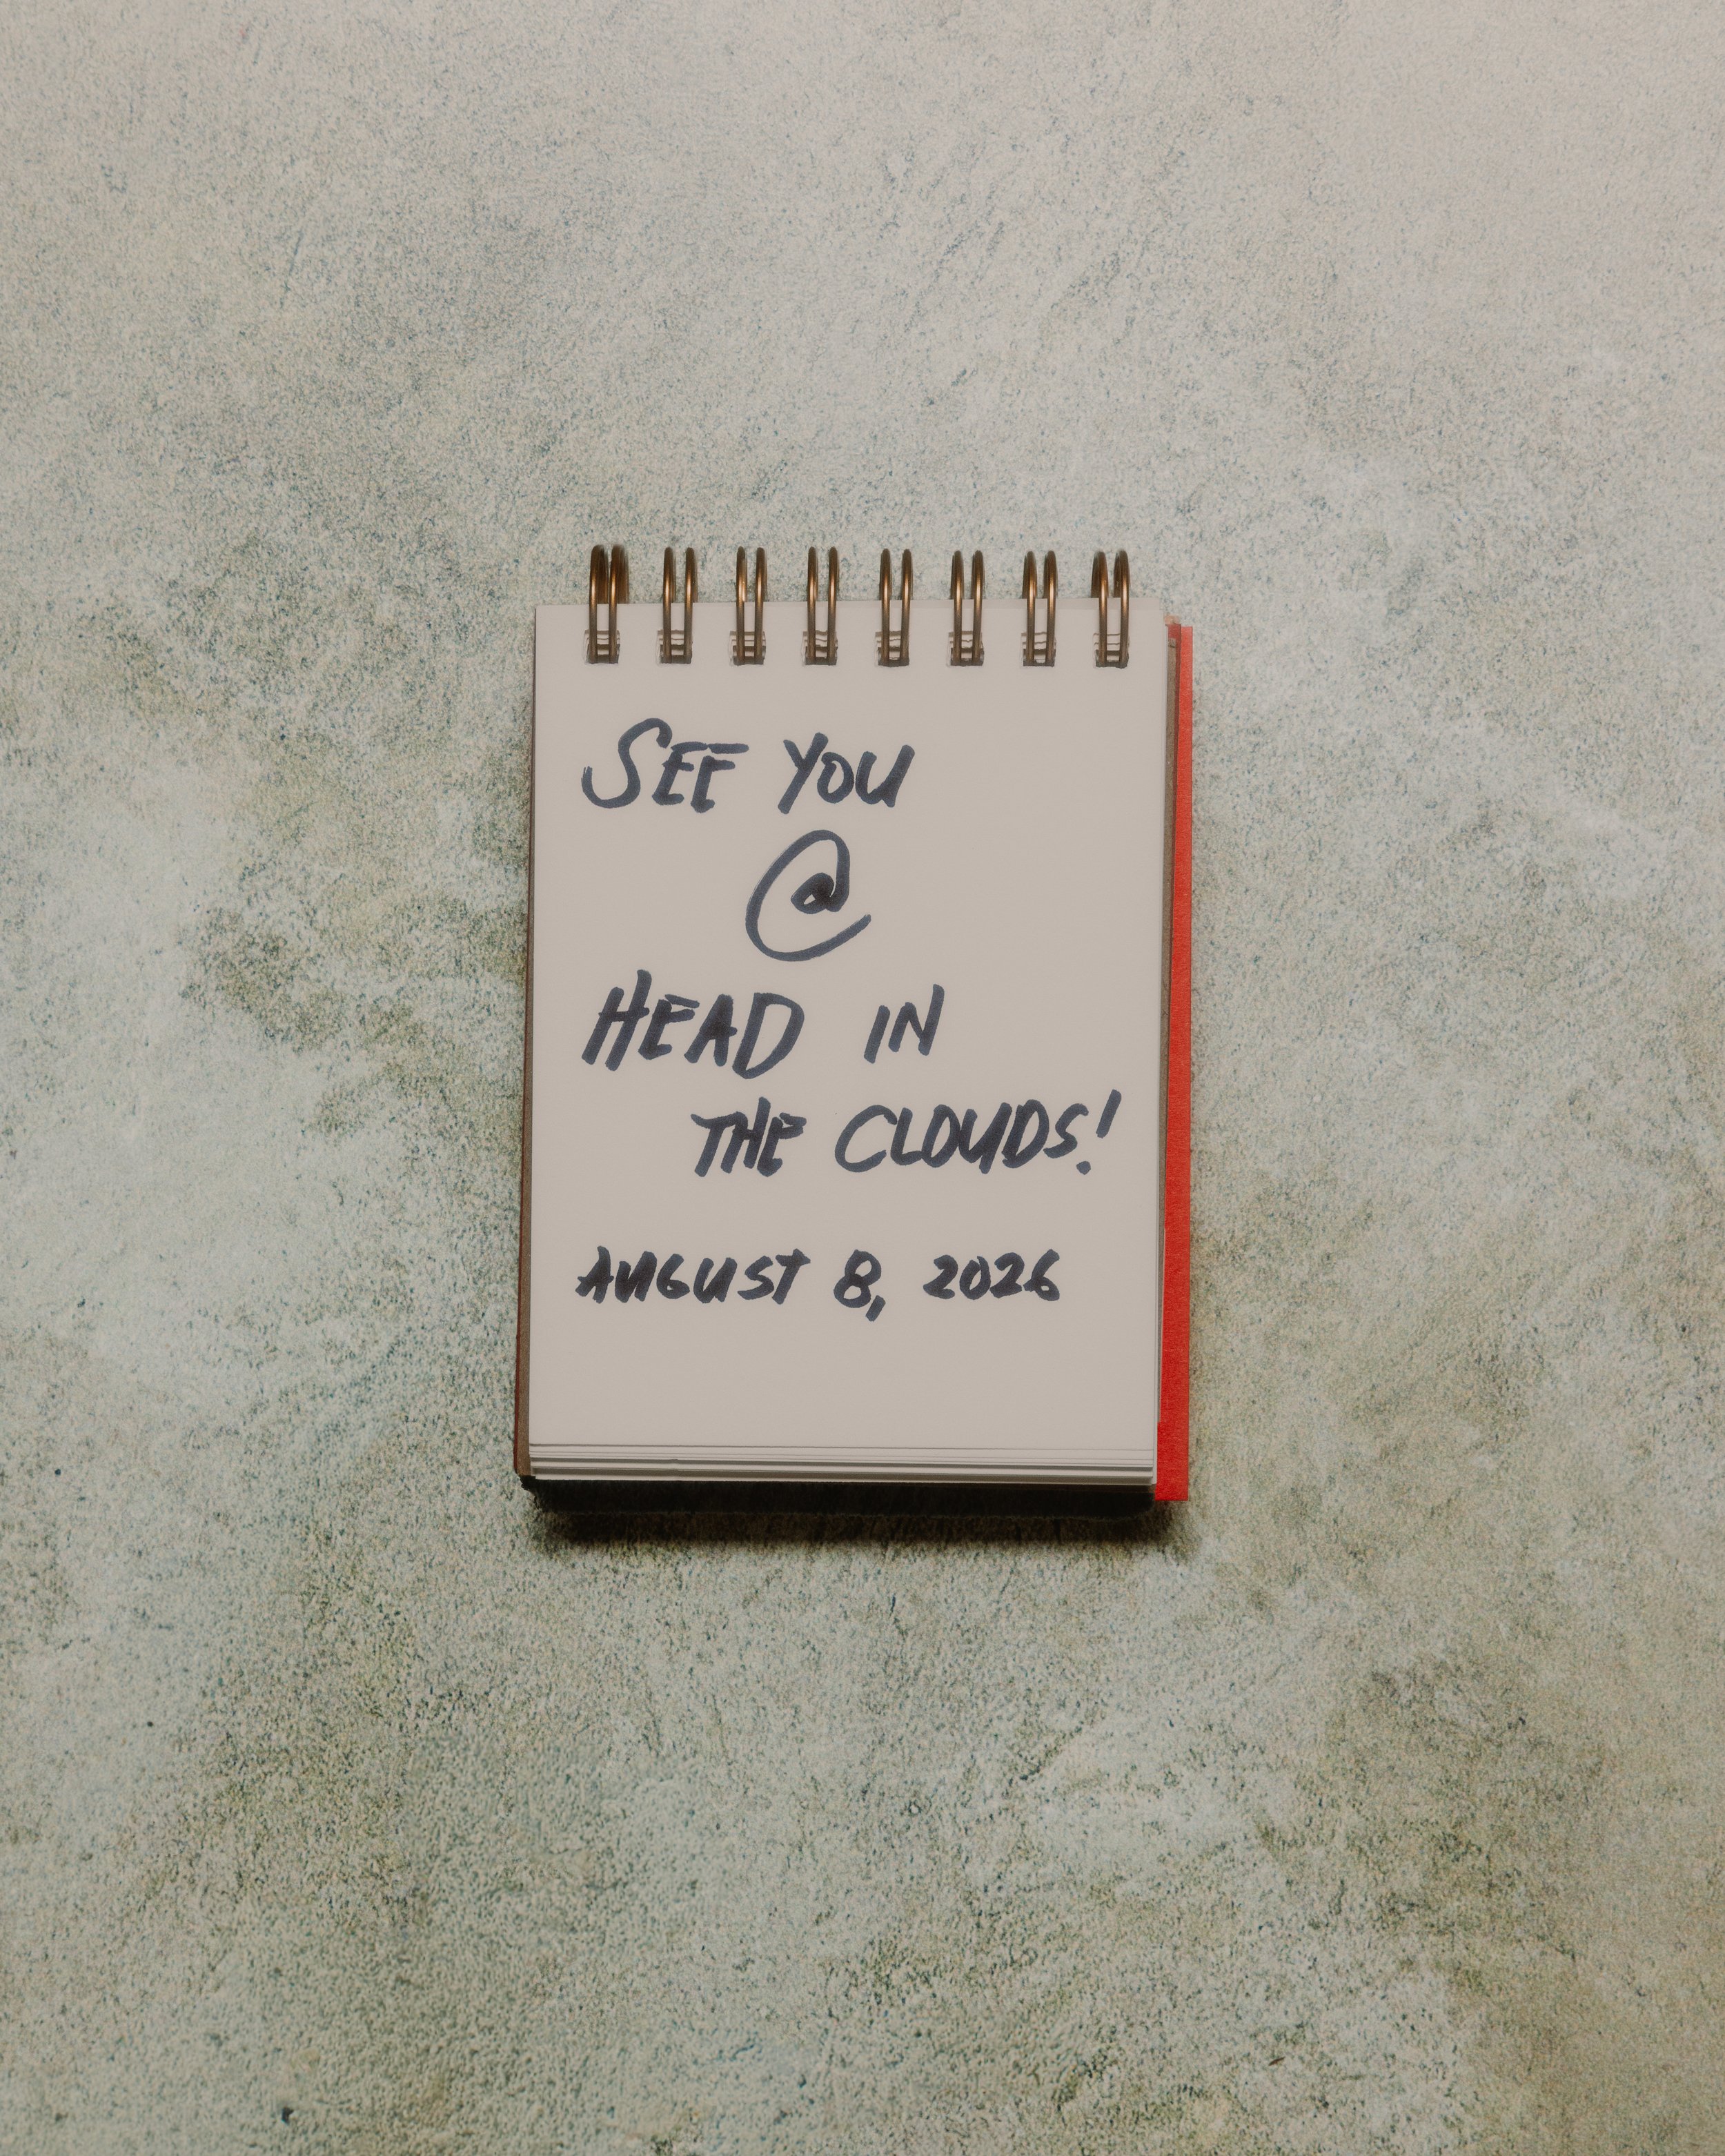 SEE YOU
@
HEAD IN
THE CLOUDS!
AUGUST 8, 2026